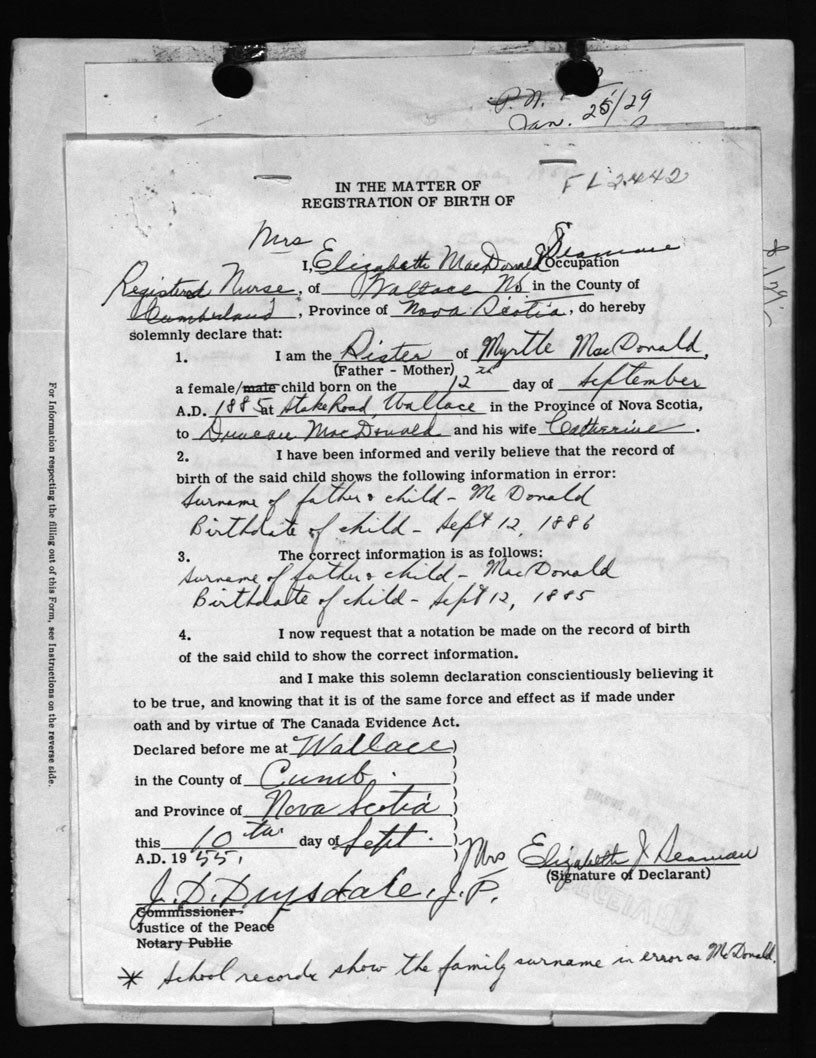 P.N.
Jan. 25/29
F L 2442
IN THE MATTER OF
REGISTRATION OF BIRTH OF
Mrs
I, Elizabeth MacDonald Seaman Occupation
Registered Nurse, of Wallace NS in the County of
Cumberland, Province of Nova Scotia, do hereby
solemnly declare that:
1. I am the Sister of Myrtle MacDonald,
(Father - Mother)
a female/male child born on the 12 day of September
A.D. 1885 at Stake Road, Wallace in the Province of Nova Scotia,
to Duncan MacDonald and his wife Catherine.
2. I have been informed and verily believe that the record of
birth of the said child shows the following information in error:
Surname of father & child - McDonald
Birthdate of child - Sept 12, 1886
3. The correct information is as follows:
Surname of father & child - MacDonald
Birthdate of child - Sept 12, 1885
4. I now request that a notation be made on the record of birth
of the said child to show the correct information.
and I make this solemn declaration conscientiously believing it
to be true, and knowing that it is of the same force and effect as if made under
oath and by virtue of The Canada Evidence Act.
Declared before me at Wallace )
in the County of Cumb. )
and Province of Nova Scotia )
this 10th day of Sept. )
A.D. 1955. )
Mrs Elizabeth J. Seaman
(Signature of Declarant)
J. D. Drysdale, J.P.
Commissioner
Justice of the Peace
Notary Public
* School records show the family surname in error as McDonald.
For Information respecting the filling out of this Form, see Instructions on the reverse side.